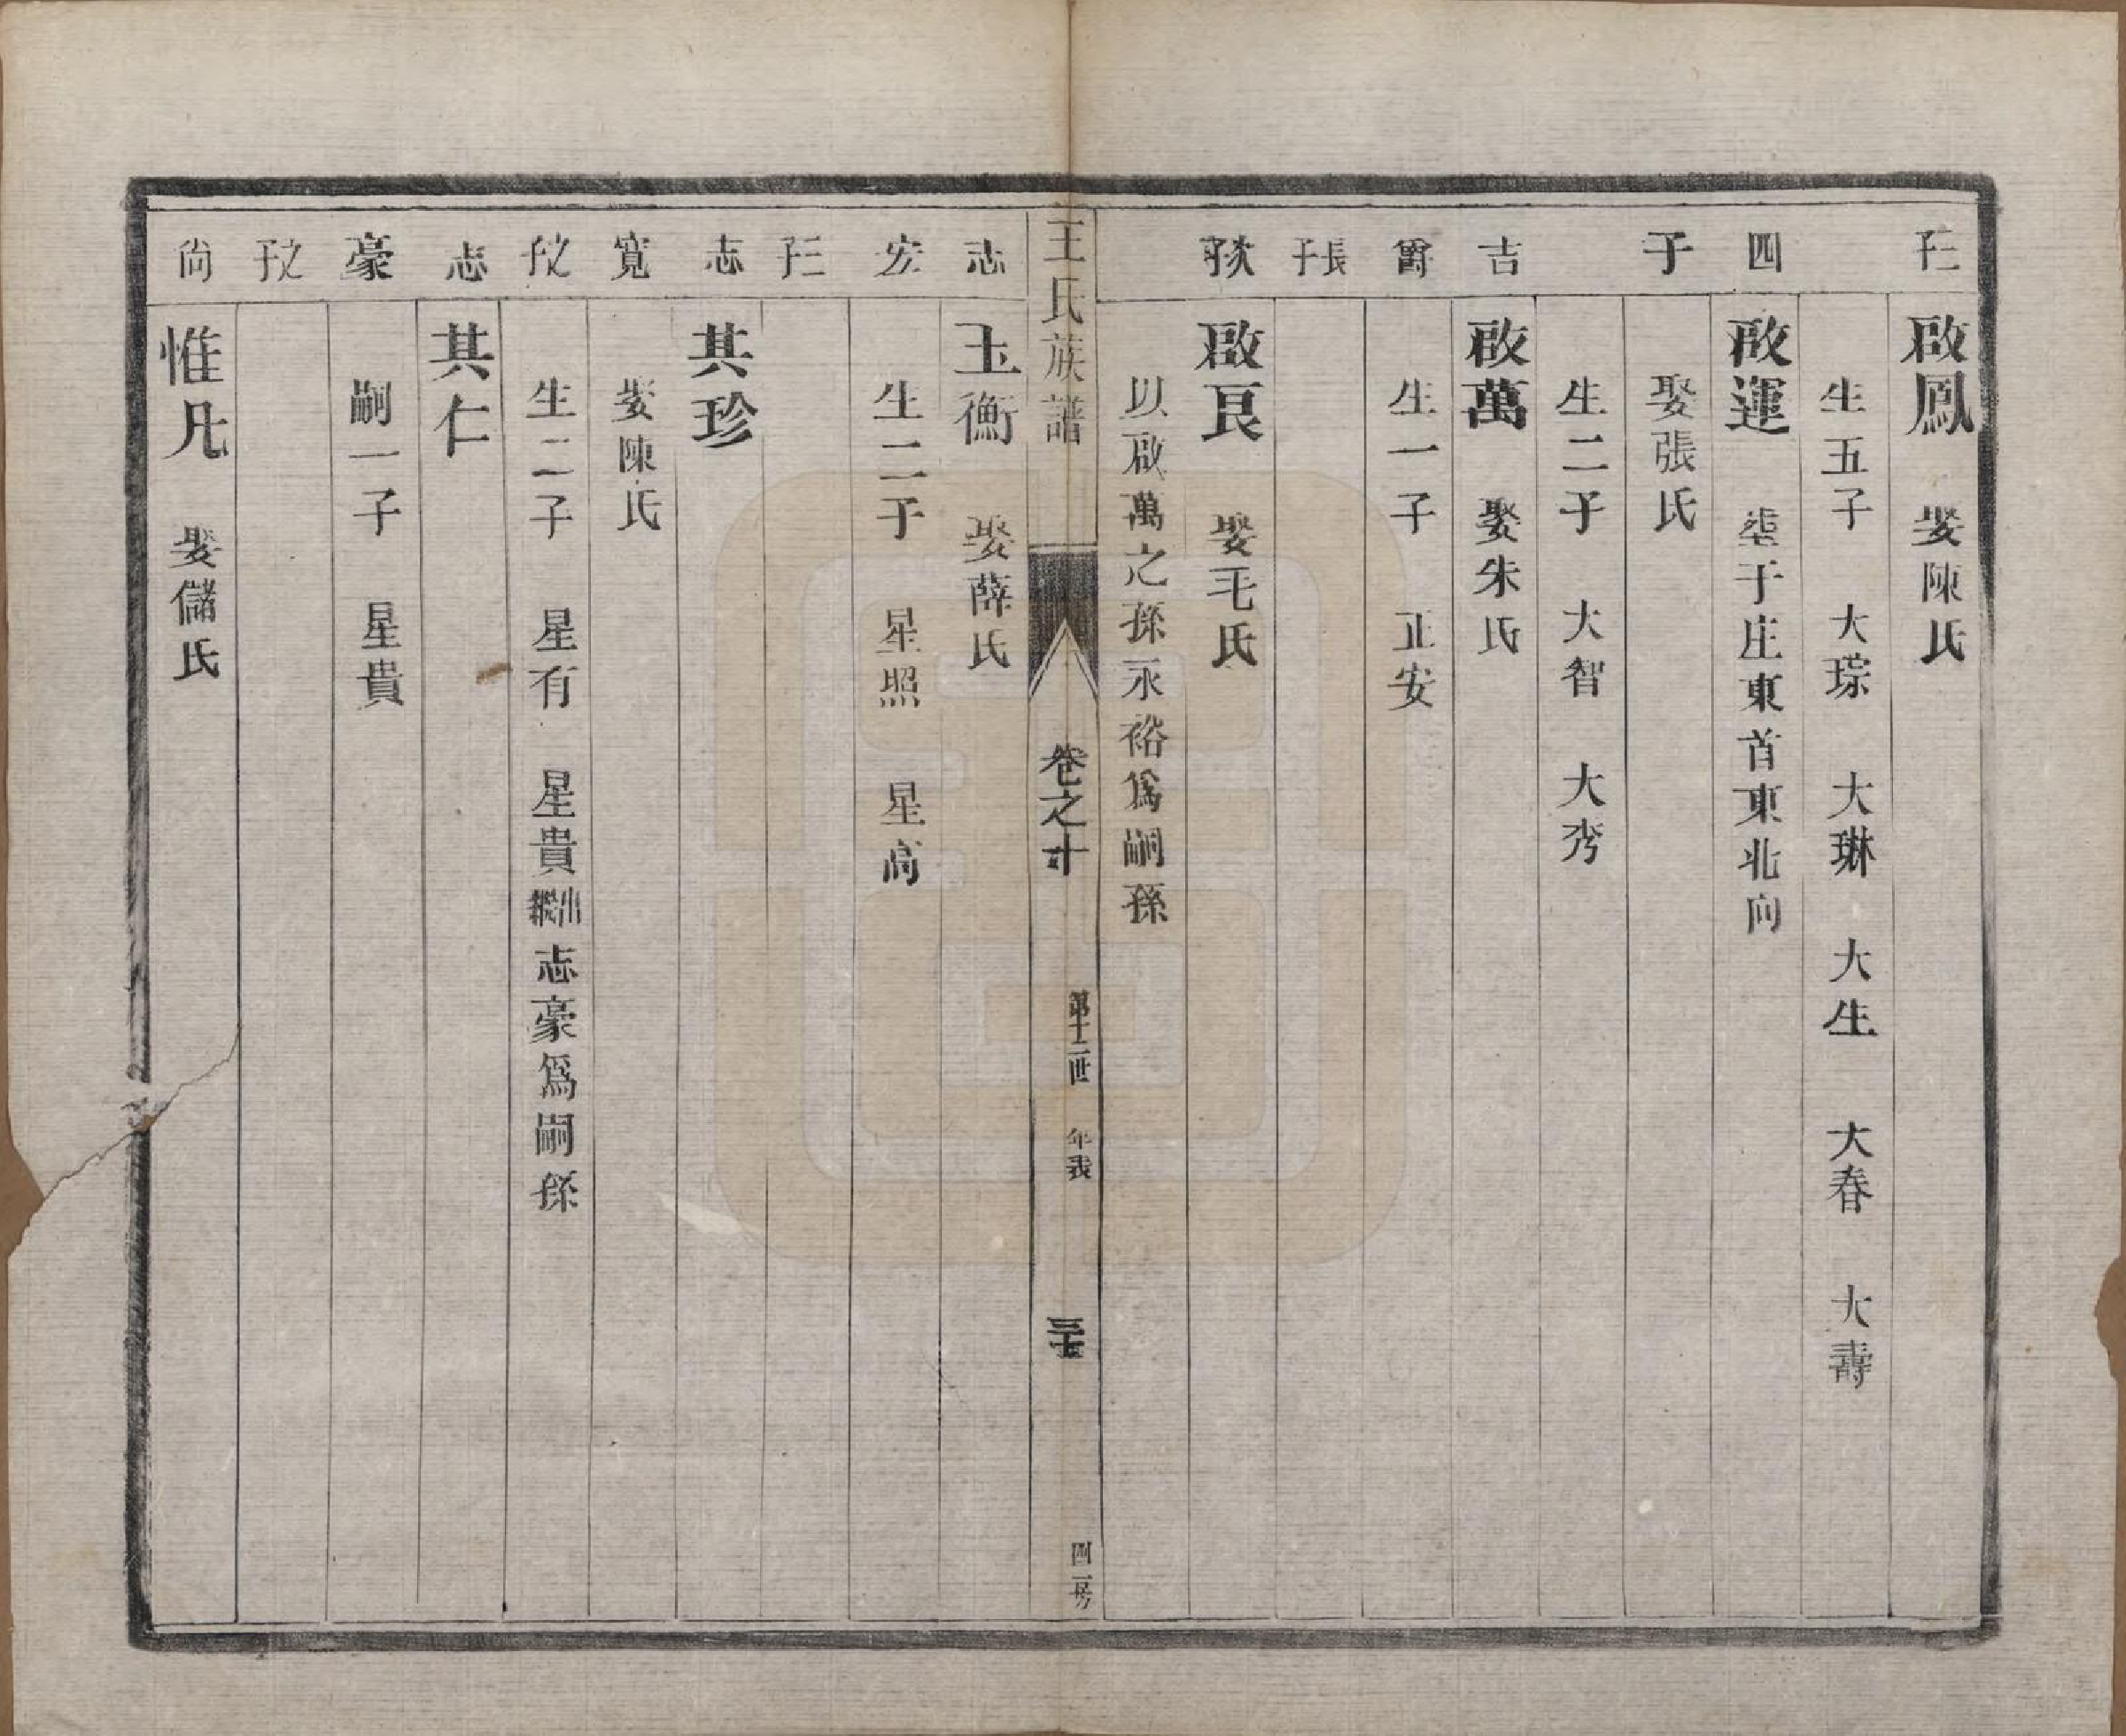 三子 啟鳳 娶陳氏
生五子 大琮 大琳 大生 大春 大壽
四 啟運 塋于庄東首東北向
子 娶張氏
生二子 大智 大秀
吉 啟萬 娶朱氏
爵 生一子 正安
長子
次子 啟良 娶毛氏
以啟萬之孫永裕為嗣孫
王氏族譜 卷之十 第十二世 年表 三十七 四房
志 玉衡 娶薛氏
宏 生二子 星照 星高
三子
志 其珍
寬 娶陳氏
次子 生二子 星有 星貴出繼志豪為嗣孫
志 其仁
豪 嗣一子 星貴
次子
尚 惟凡 娶儲氏